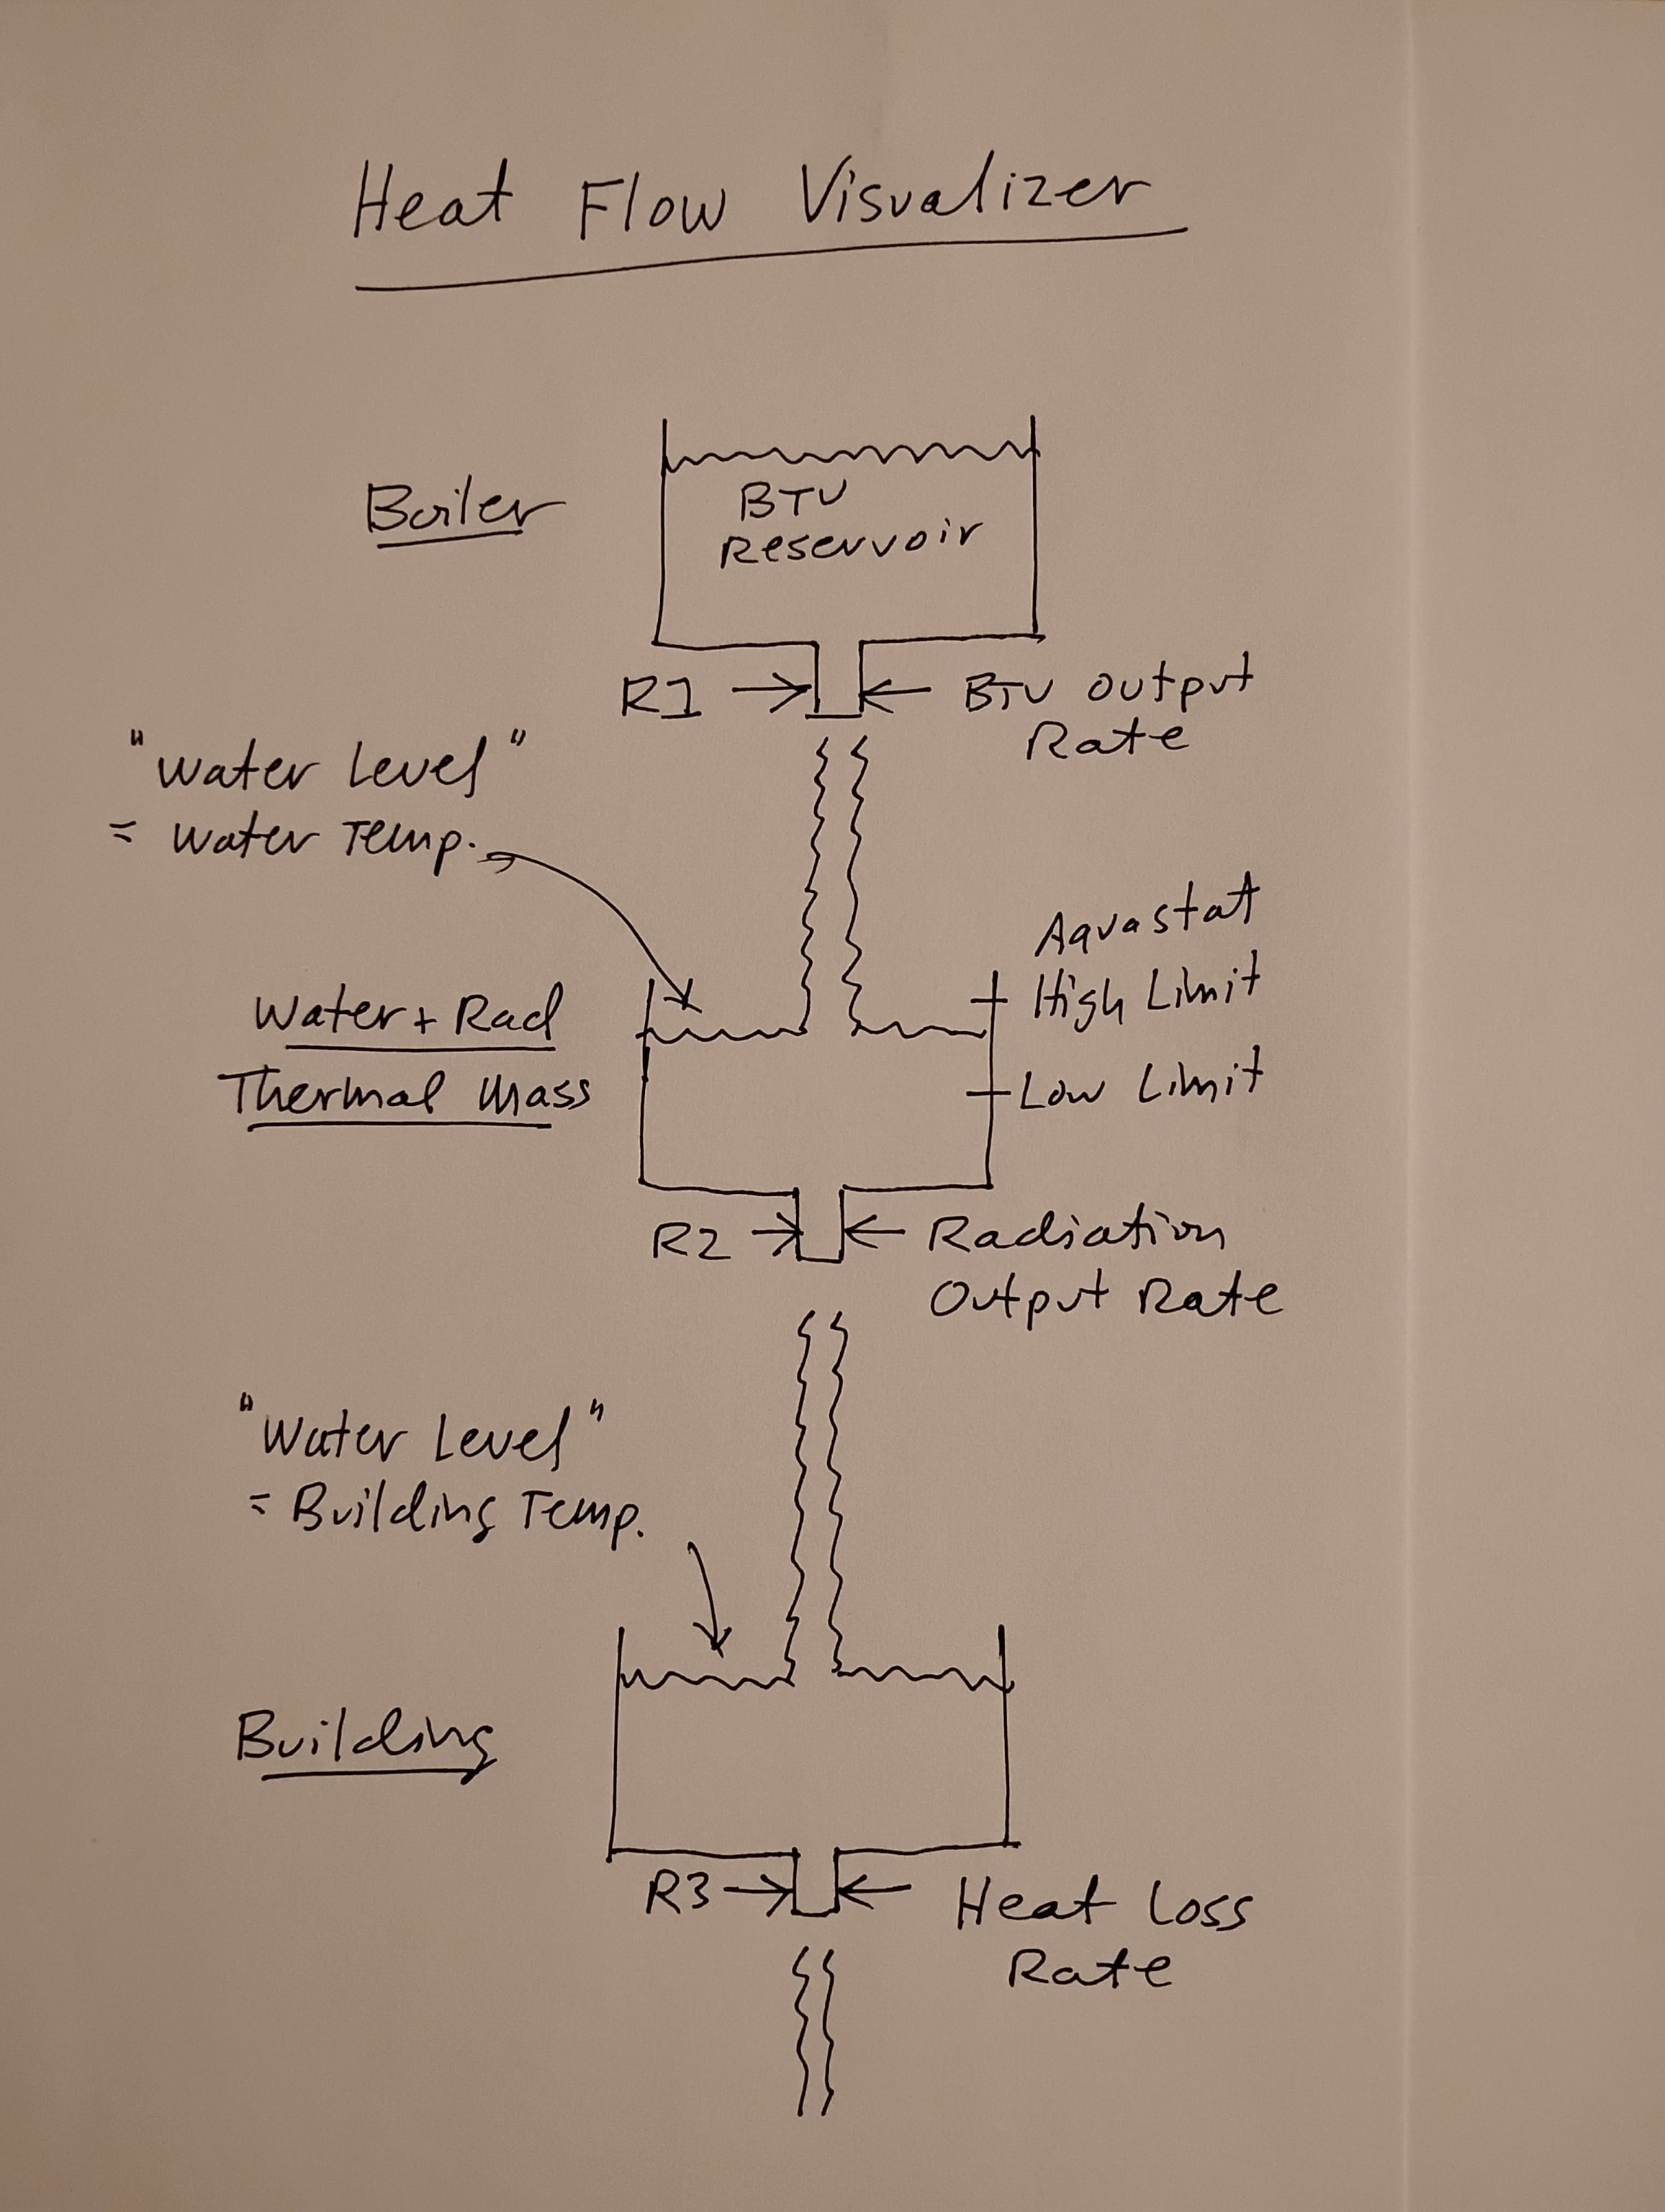 Heat Flow Visualizer
Boiler
BTU
Reservoir
R1
BTU Output
Rate
"Water Level"
= Water Temp.
Aquastat
High Limit
Water + Rad
Thermal Mass
Low Limit
R2
Radiation
Output Rate
"Water Level"
= Building Temp.
Building
R3
Heat Loss
Rate